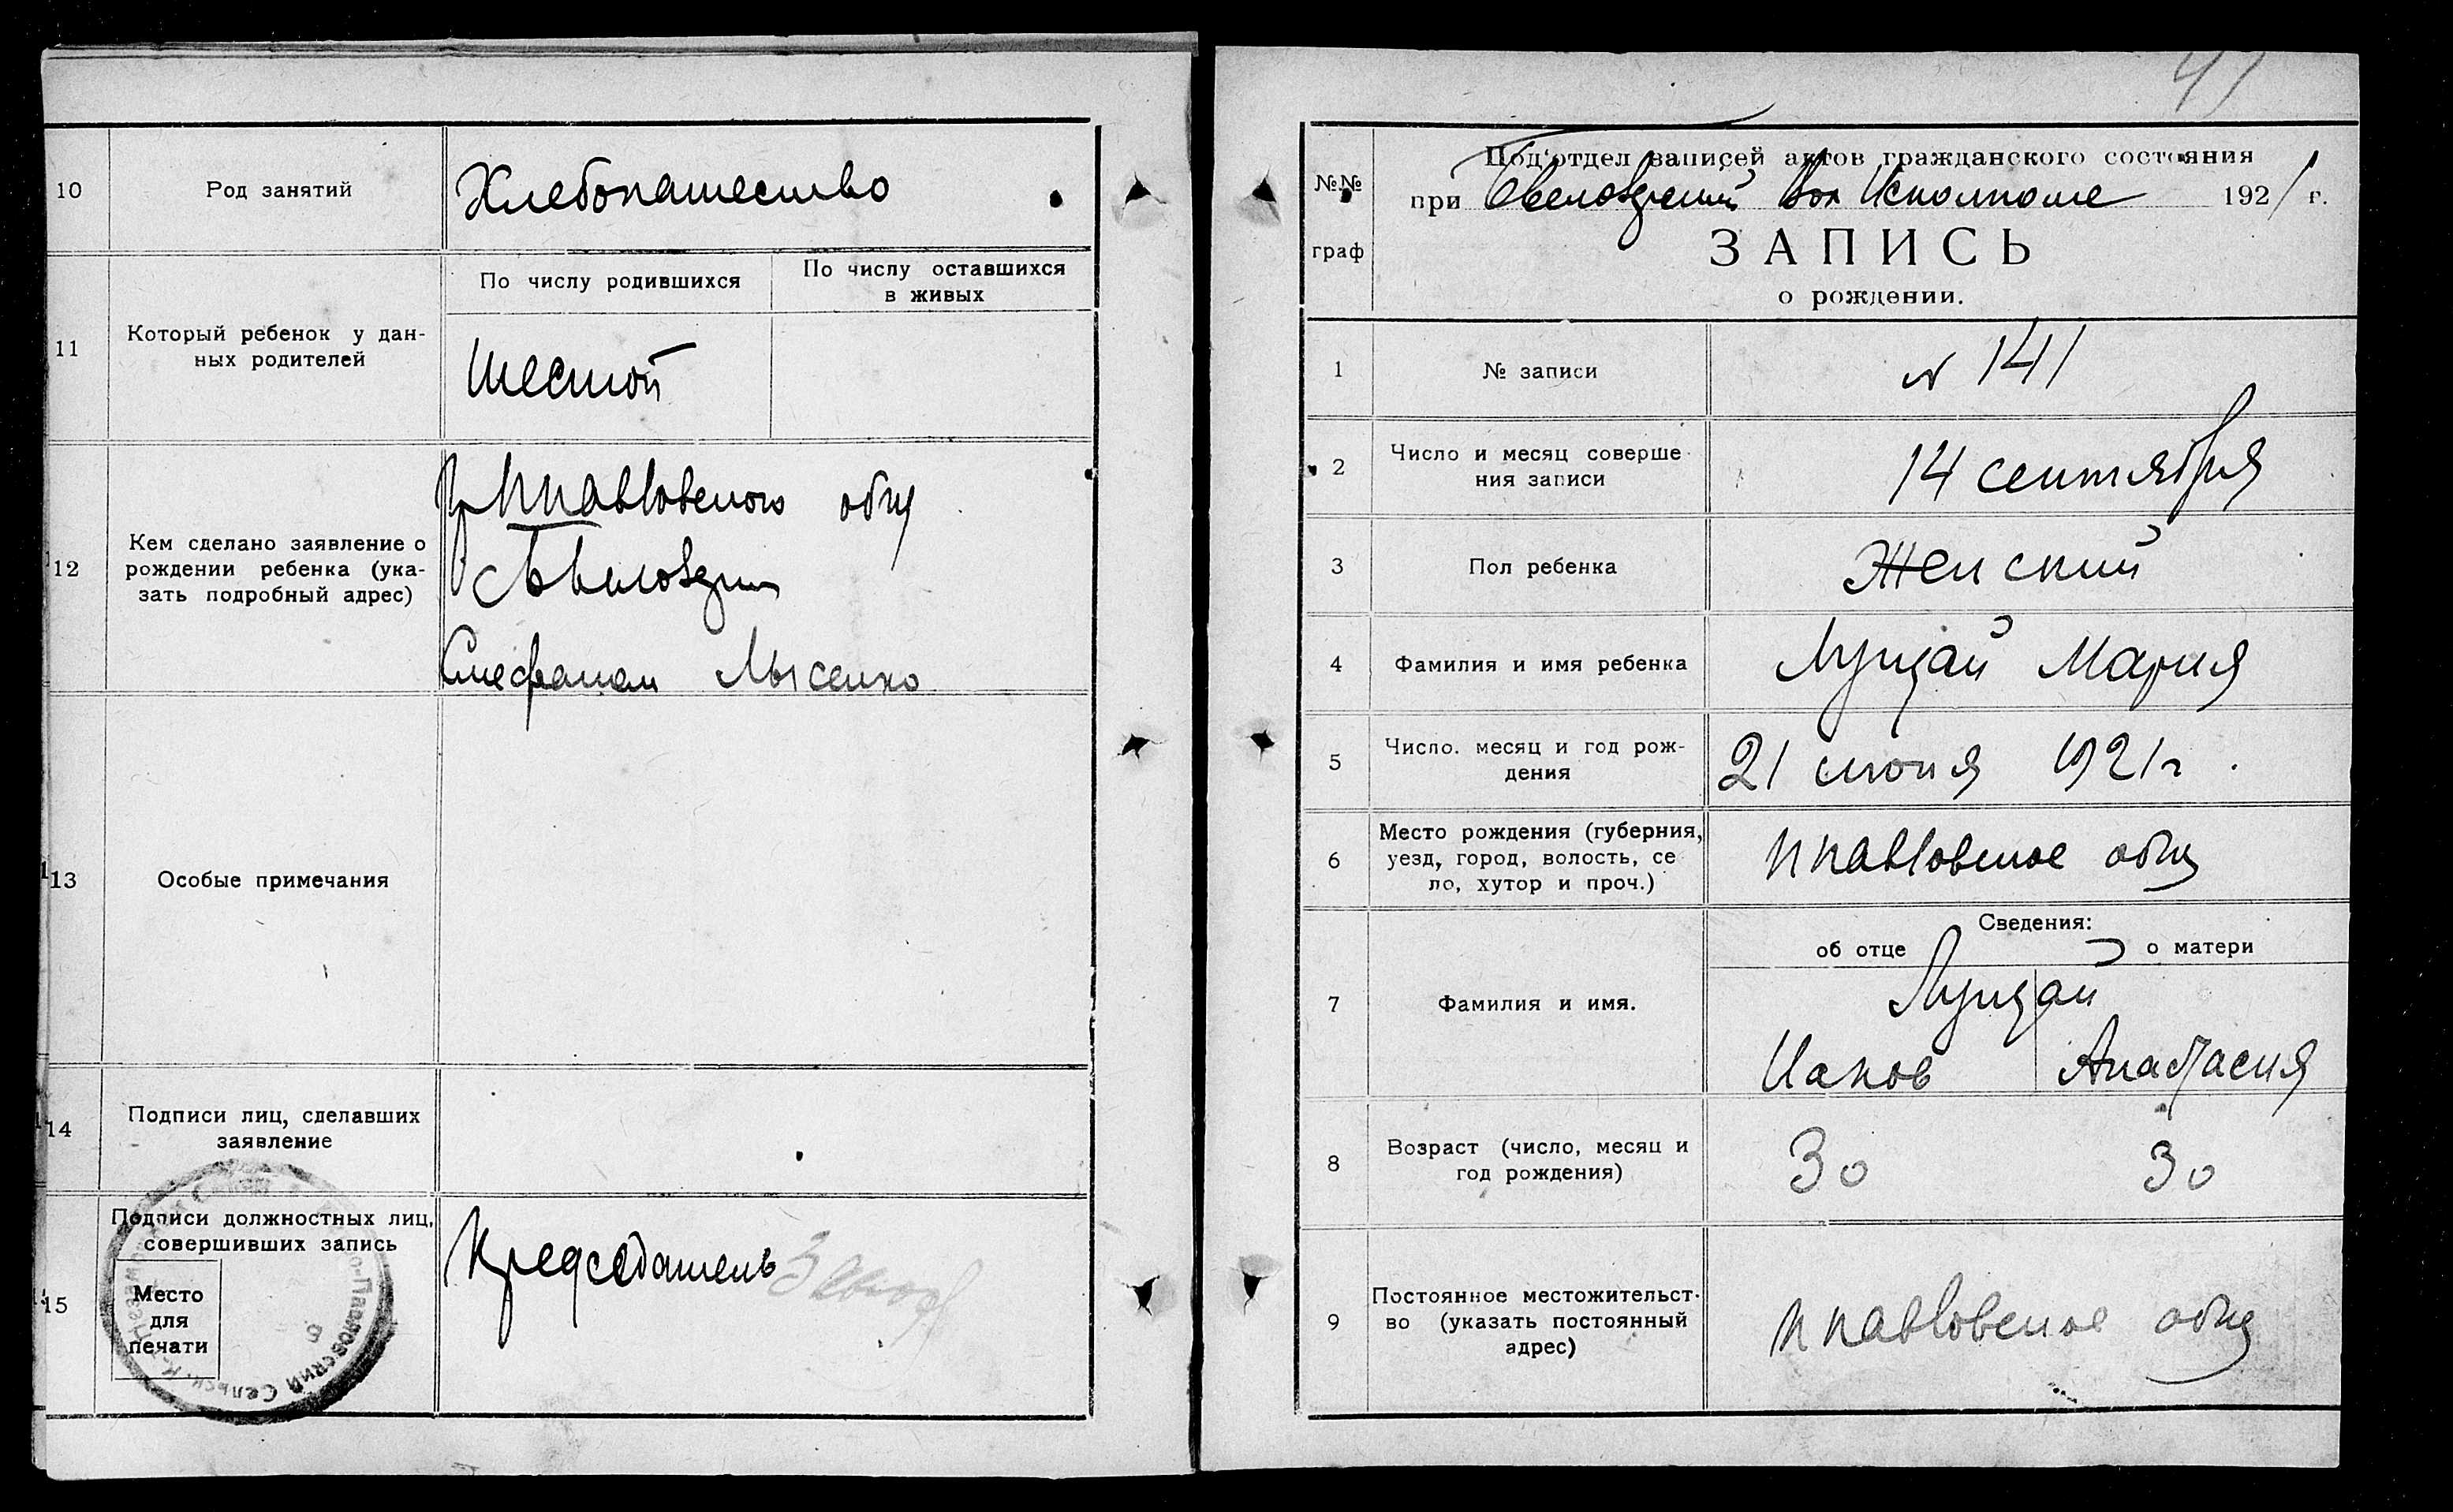 10
Род занятий
Хлебопашество
11
Который ребенок у дан-
ных родителей
По числу родившихся
По числу оставшихся
в живых
Шестой
12
Кем сделано заявление о
рождении ребенка (ука-
зать подробный адрес)
Лысенко
13
Особые примечания
14
Подписи лиц, сделавших
заявление
15
Подписи должностных лиц,
совершивших запись
Место
для
печати
Председатель
№№
граф
Под'отдел записей актов гражданского состояния
при Вол Исполкоме 1921 г.
ЗАПИСЬ
о рождении.
1
№ записи
N 141
2
Число и месяц соверше-
ния записи
14 сентября
3
Пол ребенка
Женский
4
Фамилия и имя ребенка
Луцай Мария
5
Число. месяц и год рож-
дения
21 июня 1921 г.
6
Место рождения (губерния,
уезд, город, волость, се
ло, хутор и проч.)
Н павловское общ
7
Фамилия и имя.
Сведения:
об отце
о матери
Луцай
Иаков
Анастасия
8
Возраст (число, месяц и
год рождения)
30
30
9
Постоянное местожительст-
во (указать постоянный
адрес)
Н павловское общ